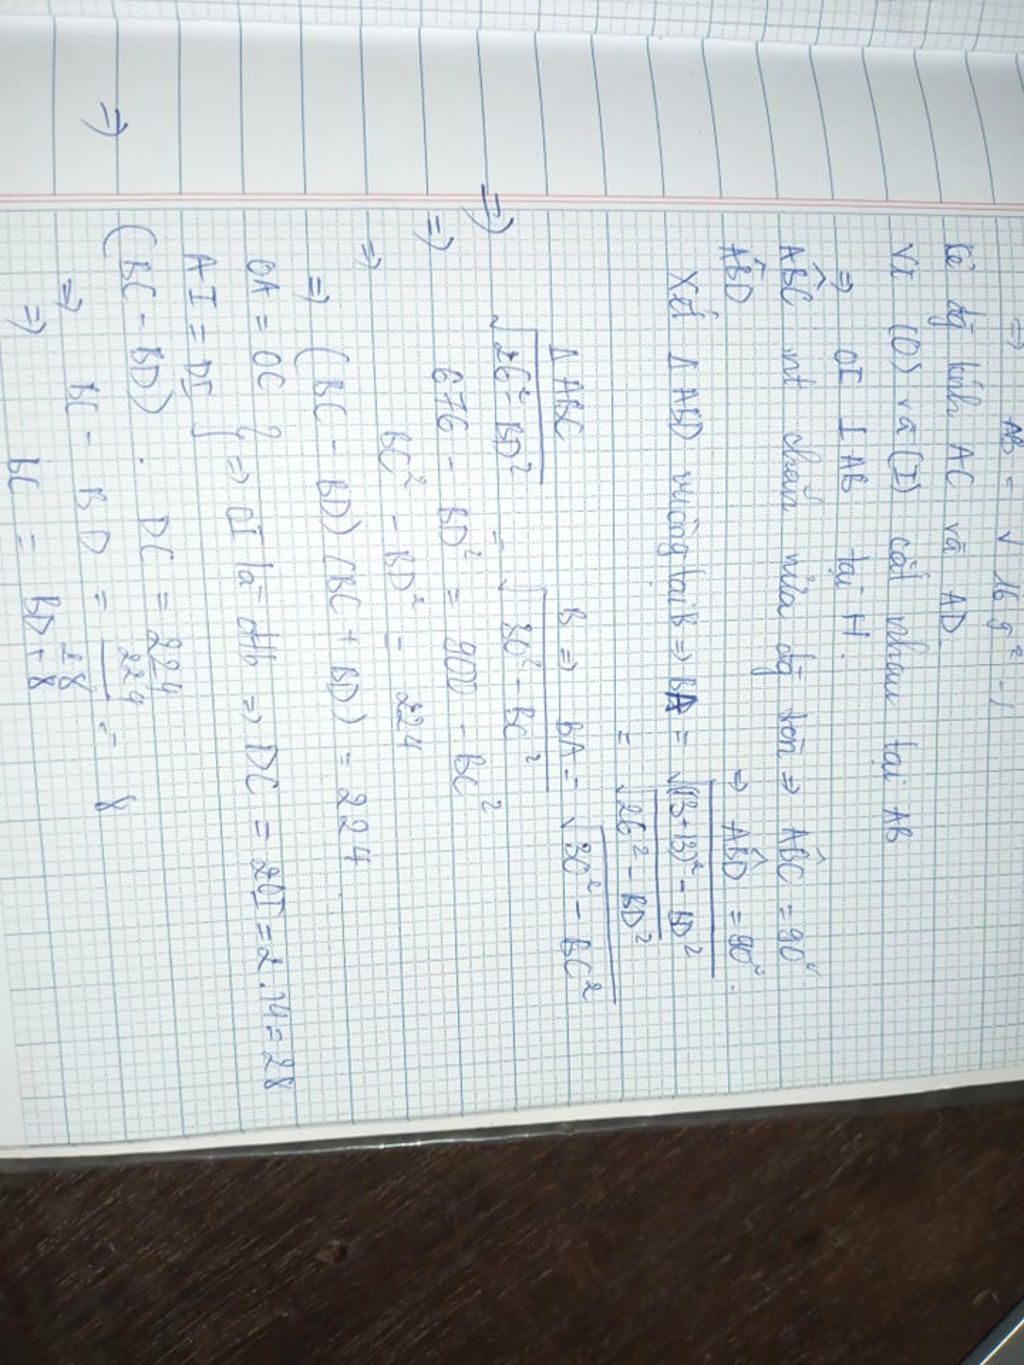 ⇒ AB = √169² - 1
Kẻ đg kính AC và AD.
Vì (O) và (I) cắt nhau tại AB
⇒ OI ⊥ AB tại H.
ABC nt chắn nửa đg tròn ⇒ ABC = 90°
ABD ⇒ ABD = 90°.
Xét Δ ABD vuông tại B ⇒ BA = √(13+13)² - BD²
= √26² - BD²
Δ ABC B ⇒ BA = √30² - BC²
⇒) √26² - BD² = √30² - BC²
⇒ 676 - BD² = 900 - BC²
⇒ BC² - BD² = 224
⇒ (BC - BD) (BC + BD) = 224
OA = OC
AI = DI } ⇒ OI là đtb ⇒ DC = 2OI = 2.14 = 28
⇒ (BC - BD) . DC = 224
⇒ BC - BD = 224/28 = 8
⇒ BC = BD + 8